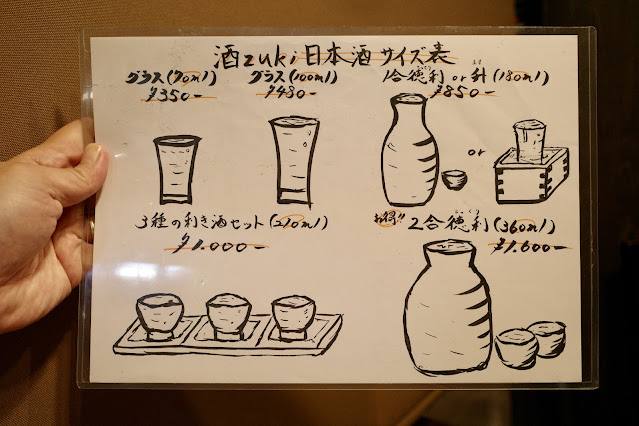 酒zuki日本酒サイズ表
グラス(70ml)
¥350-
グラス(100ml)
¥480-
1合徳利or升(180ml)
¥850-
or
3種の利き酒セット(210ml)
¥1.000-
お得!! 2合徳利(360ml)
¥1.600-